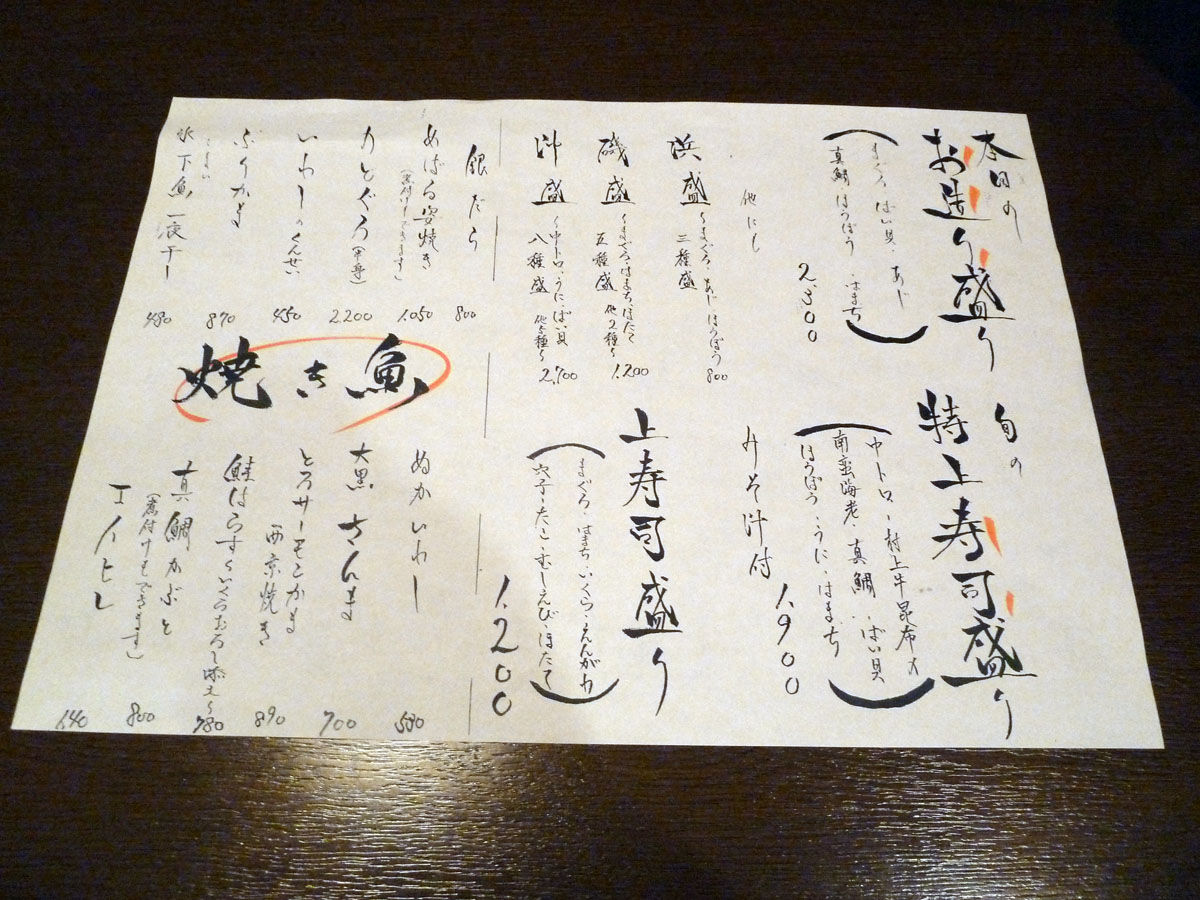 本日の
お造り盛り
まぐろ・ばい貝・あじ
真鯛・ほうぼう・はまち
2,300
他にも
浜盛 〜まぐろ・あじ・ほうぼう
三種盛
800
磯盛 〜まぐろ・はまち・ほたて
五種盛 他2種〜
1,200
沖盛 〜中トロ・うに・ばい貝
八種盛 他5種〜
2,700
旬の
特上寿司盛り
中トロ・村上牛昆布〆
南蛮海老・真鯛・ばい貝
ほうぼう・うに・はまち
みそ汁付
1,900
上寿司盛り
まぐろ・はまち・いくら・えんがわ
穴子・たこ・むしえび・ほたて
1,200
焼き魚
銀だら 800
めばる姿焼き 1,050
(煮付けもできます)
のどぐろ 2,200
いわしのくんせい 450
ぶりかま 870
氷下魚一夜干し 480
こまい
ぬかいわし 530
大黒さんま 700
とろサーモンかま
西京焼き 890
鮭はらす〜いくらおろし添え〜 780
真鯛かぶと 800
(煮付けもできます)
エイヒレ